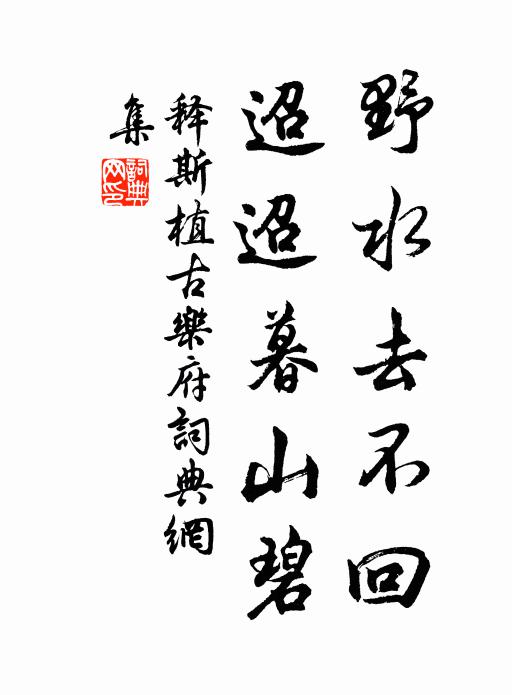 野水去不回
迢迢暮山碧
释斯植古樂府詞典網
集
詞典網印